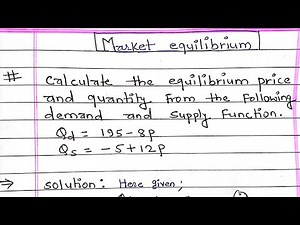 Market equilibrium
# Calculate the equilibrium price
and quantity from the following
demand and supply function.
Qd = 195-8P
Qs = -5+12P
⇒ solution: Here given;